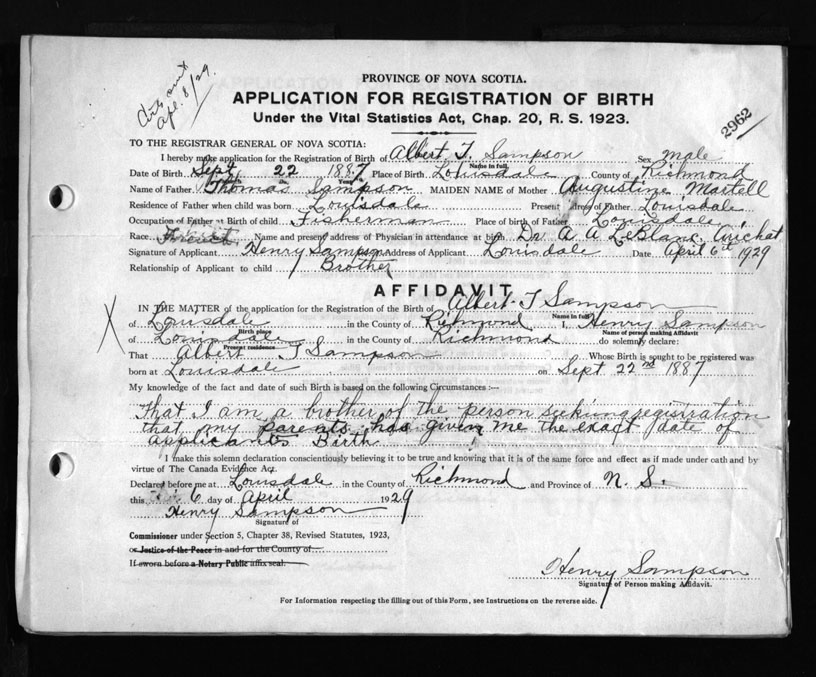 Apl. 8/29.
PROVINCE OF NOVA SCOTIA.
APPLICATION FOR REGISTRATION OF BIRTH
Under the Vital Statistics Act, Chap. 20, R. S. 1923.
2962
TO THE REGISTRAR GENERAL OF NOVA SCOTIA:
I hereby make application for the Registration of Birth of Albert T. Sampson Sex male
Name in full
Date of Birth Sept 22 1887 Place of Birth Louisdale County of Richmond
Name of Father Thomas Sampson MAIDEN NAME of Mother Augustine Martell
Residence of Father when child was born Louisdale Present Adress of Father Louisdale
Occupation of Father at Birth of child Fisherman Place of birth of Father Louisdale
Race French Name and present address of Physician in attendance at birth Dr. A A LeBlanc, Arichat
Signature of Applicant Henry Sampson Address of Applicant Louisdale Date April 6th 1929
Relationship of Applicant to child Brother
AFFIDAVIT
IN THE MATTER of the application for the Registration of the Birth of Albert T Sampson
Name in full
of Louisdale in the County of Richmond I, Henry Sampson
Birth place Name of person making Affidavit
of Louisdale in the County of Richmond do solemnly declare:
Present residence
That Albert T Sampson Whose Birth is sought to be registered was
born at Louisdale on Sept 22nd 1887
My knowledge of the fact and date of such Birth is based on the following Circumstances :—
That I am a brother of the person seeking registration
that my parents has given me the exact date of
applicants Birth
I make this solemn declaration conscientiously believing it to be true and knowing that it is of the same force and effect as if made under oath and by
virtue of The Canada Evidence Act.
Declared before me at Louisdale in the County of Richmond and Province of N. S.
this 6 day of April 1929
Henry Sampson
Signature of
Commissioner under Section 5, Chapter 38, Revised Statutes, 1923,
or Justice of the Peace in and for the County of
If sworn before a Notary Public affix seal.
Henry Sampson
Signature of Person making Affidavit.
For Information respecting the filling out of this Form, see Instructions on the reverse side.